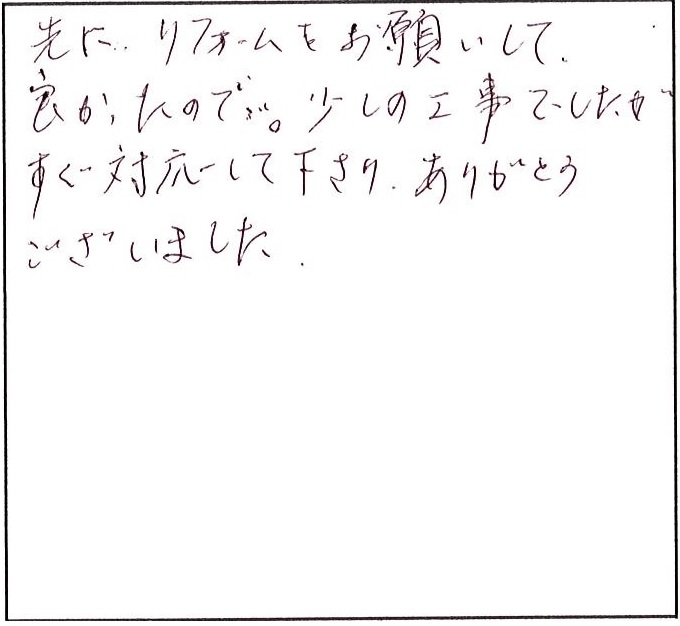 先に、リフォームをお願いして、
良かったので。少しの工事でしたが
すぐ対応して下さり、ありがとう
ございました。